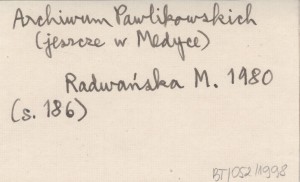 Archiwum Pawlikowskich
(jeszcze w Medyce)
Radwańska M. 1980
(s. 186)
BT/052/1998